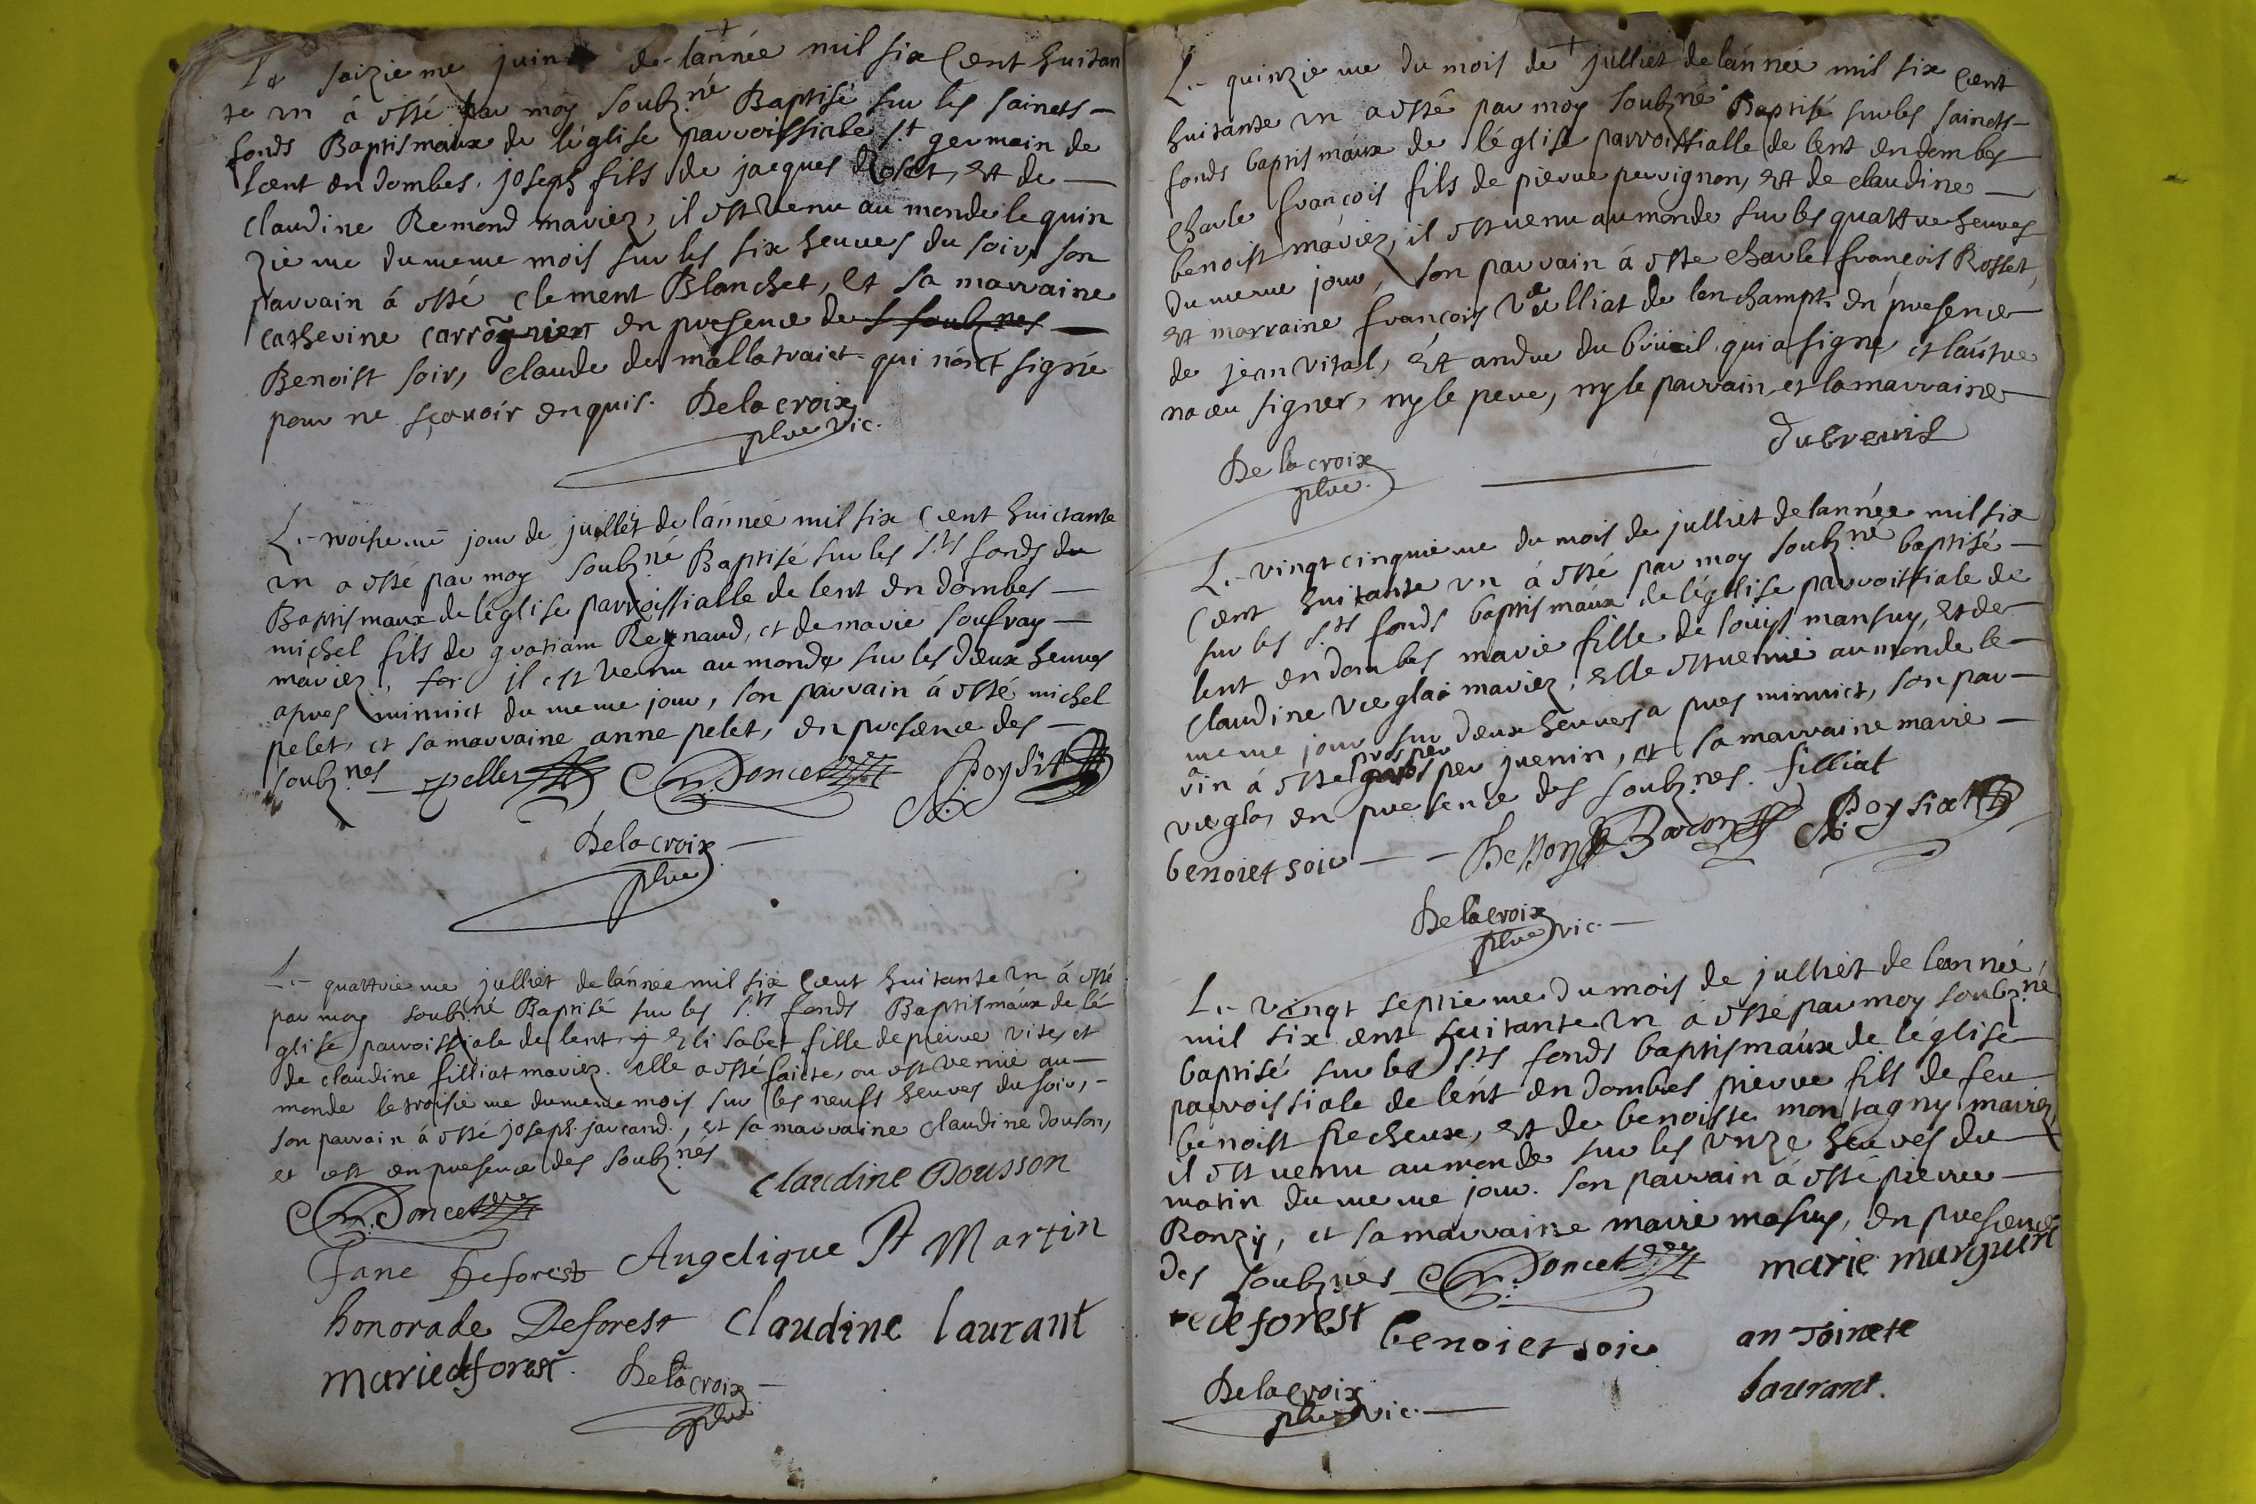 Le saizieme juin de lannée mil six Cent huitan
te vn á esté par moy soubz.né Baptisé sur les saincts
fonds Baptismaux de léglise parroissiale st germain de
Lent en dombes. joseph fils de jacques Roset, et de
claudine Remond mariez, il est venu au monde le quin
zieme du meme mois sur les six heures du soir, son
parrain á esté clement Blanchet, et sa marraine
catherine en presence des soubz.nes
Benoist soir, claude de mallatraict qui nónt signé
pour ne sçavoir enquis. Delacroix
ptre vic.
Le troisieme jour de juillet de lánnée mil six Cent huictante
vn a esté par moy soubz.né Baptisé sur les s.ts fonds du
Baptismaux de léglise parroissialle de lent en dombes
michel fils de gratiam Reynaud, et de marie soufray
mariez, il est venu au monde sur les deux heures
apres minuict du meme jour, son parrain á esté michel
pelet, et sa marraine anne pelet, en presence des
soubz.nes pellet Doncet Poysat
Delacroix
ptre
Le quattrieme julliet de lánnée mil six Cent huitante vn á esté
par moy soubz.né Baptisé sur les s.ts fonds Baptismáux de lé
glise parroissiale de lent Elisabet fille de pierre vites et
de claudine filliat mariez. elle a esté faicte, ou est venüe au
monde le troisieme du meme mois sur les neufs heures du soir,
son parrain á esté joseph. farcand., et sa marraine claudine douson,
et est en presence des soubz.nés
claudine Dousson
Doncet
Jane Deforest Angelique St Martin
honorade Deforest Claudine laurant
marie deforest. Delacroix
ptre
Le quinzieme du mois de julliet de lánnée mil six Cent
huitante vn a esté par moy soubz.né Baptisé sur les saincts
fonds baptismáux de léglise parroissialle de lent en dombes
Charle françois fils de pierre perrignon, et de claudine
benoist máriez, il est venu au monde sur les quattre heures
du meme jour, son parrain á esté charle françois Rosset,
et marraine françois vulliat de lonchampt. en presence
de jean vital, et andre du brüeil qui a signe, et láutre
na sceu signer, ny le pere, ny le parrain, et la marraine
dubreuil
Delacroix
ptre.
Le vingt cinquieme du mois de julliet de lannée mil six
Cent huitante vn á esté par moy soubz.né baptisé
sur les s.ts fonds baptismáux de léglise parroissiale de
lent en dombes marie fille de louist mansuy, et de
claudine vregla mariez, elle est venüe au monde le
meme jour sur deux heures apres minuict, son par
prosper
rin á esté juenin, et sa marraine marie
vregla, en presence des soubz.nes. filliat
benoiet soir Poysiat
Delacroix
ptre vic.
Le vingt septieme du mois de julliet de lannée,
mil six cent huitante vn á esté par moy soubz.né
baptisé sur les s.ts fonds baptismáux de léglise
parroissiale de lént en dombes pierre fils de feu
benoist Recheux, et de benoiste montagny mariez
il est venu au monde sur les vnze heures du
matin du meme jour. son parrain á esté pierre
Ronzy, et sa marraine marie masuy, en presence
des soubz.nes Doncet marie marguerit
te deforest benoiet soir antoinete
laurant.
Delacroix
ptre vic.